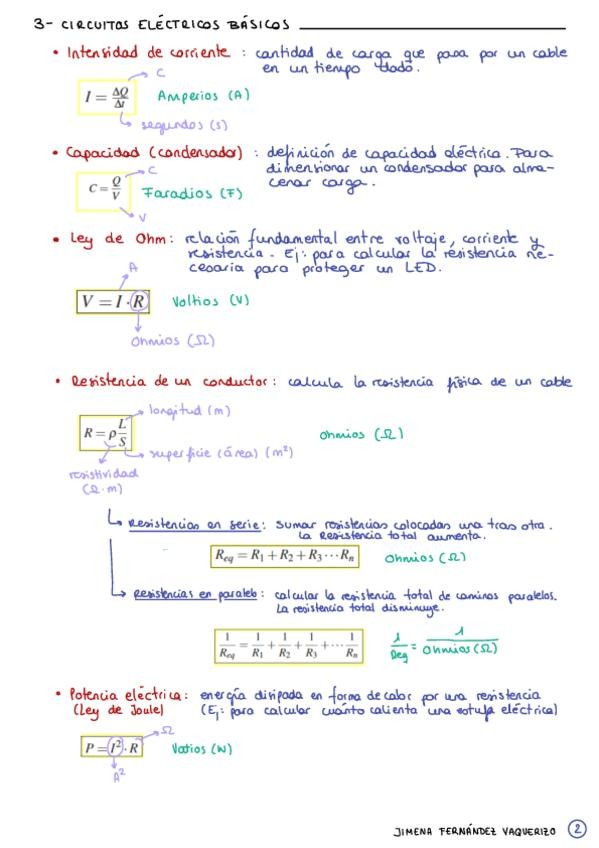 3- CIRCUITOS ELÉCTRICOS BÁSICOS
• Intensidad de corriente : cantidad de carga que pasa por un cable
en un tiempo dado.
C
I = ΔQ/Δt Amperios (A)
segundos (s)
• Capacidad (condensador) : definición de capacidad eléctrica. Para
dimensionar un condensador para alma-
cenar carga.
C
C = Q/V Faradios (F)
V
• Ley de Ohm : relación fundamental entre voltaje, corriente y
resistencia. Ej: para calcular la resistencia ne-
cesaria para proteger un LED.
A
V = I · R Voltios (V)
Ohmios (Ω)
• Resistencia de un conductor : calcula la resistencia física de un cable
longitud (m)
R = ρ L/S Ohmios (Ω)
superficie (área) (m²)
resistividad
(Ω·m)
Resistencias en serie : sumar resistencias colocadas una tras otra.
La resistencia total aumenta.
Req = R1 + R2 + R3 ··· Rn Ohmios (Ω)
Resistencias en paralelo : calcular la resistencia total de caminos paralelos.
La resistencia total disminuye.
1/Req = 1/R1 + 1/R2 + 1/R3 + ··· 1/Rn 1/Req = 1/Ohmios (Ω)
• Potencia eléctrica : energía disipada en forma de calor por una resistencia
(Ley de Joule) (Ej: para calcular cuánto calienta una estufa eléctrica)
Ω
P = I² · R Vatios (W)
A²
JIMENA FERNÁNDEZ VAQUERIZO 2